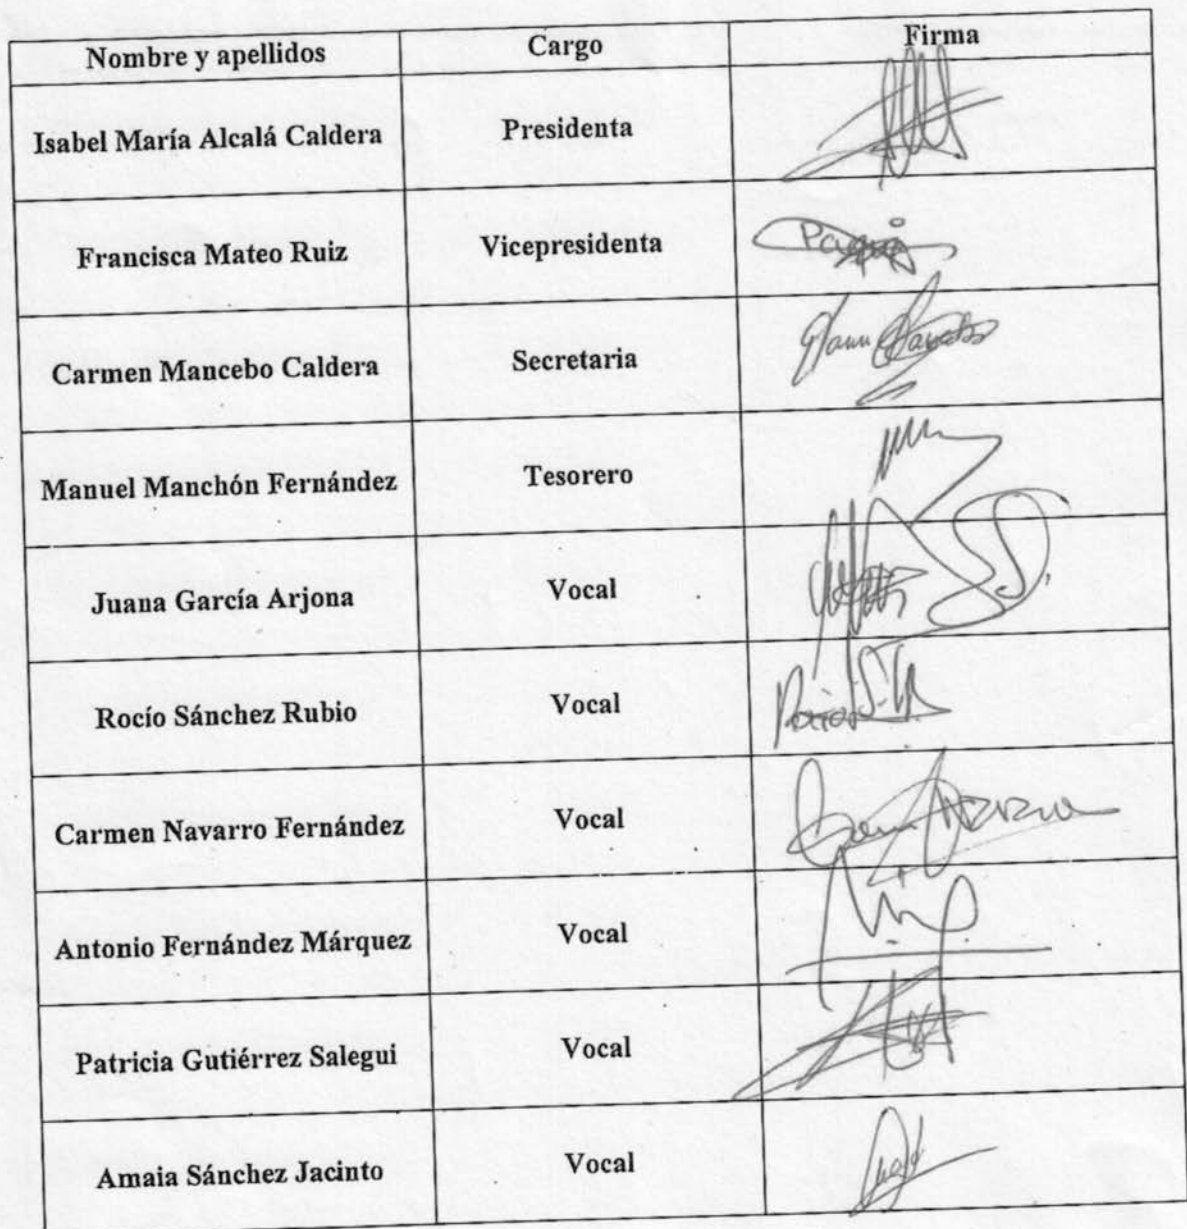 Nombre y apellidos Cargo Firma
Isabel María Alcalá Caldera Presidenta
Francisca Mateo Ruiz Vicepresidenta Paqui
Carmen Mancebo Caldera Secretaria
Manuel Manchón Fernández Tesorero
Juana García Arjona Vocal
Rocío Sánchez Rubio Vocal Rocío
Carmen Navarro Fernández Vocal
Antonio Fernández Márquez Vocal
Patricia Gutiérrez Salegui Vocal
Amaia Sánchez Jacinto Vocal